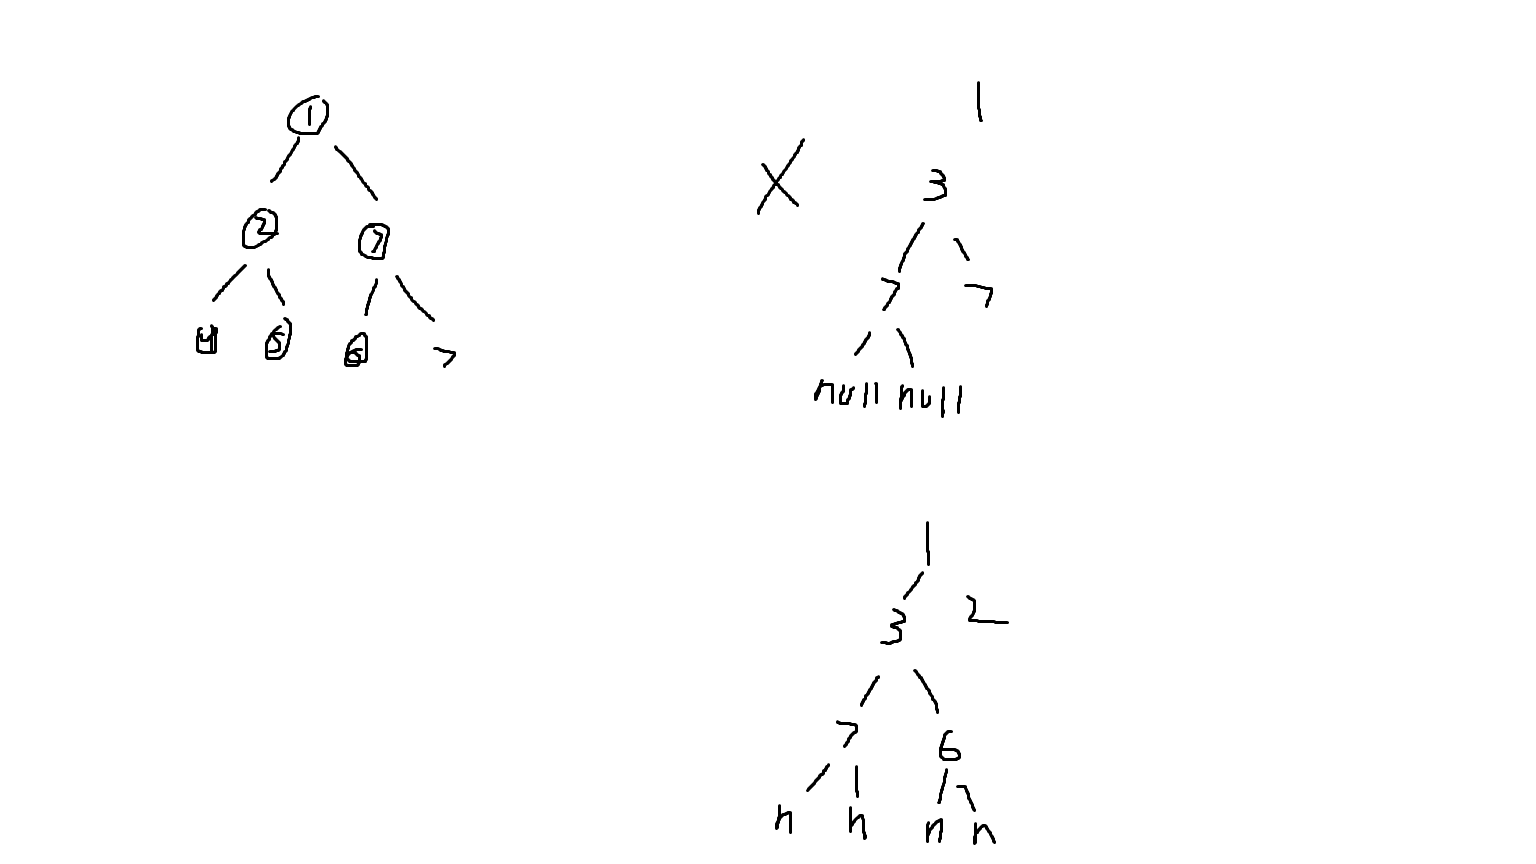 1
2 7
4 5 6 7
1
X 3
7 7
null null
1
3 2
7 6
n n n n